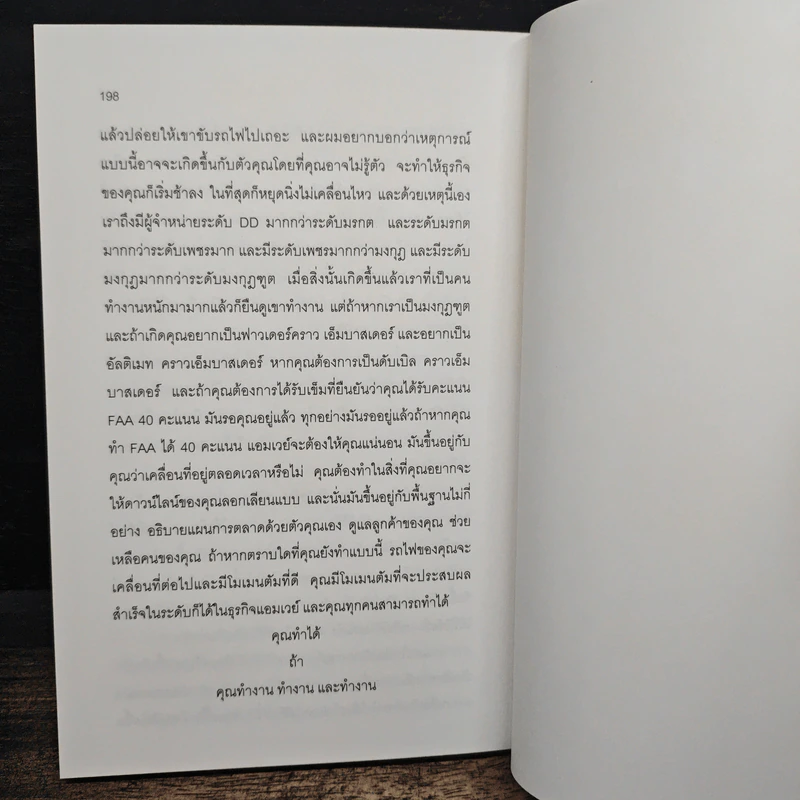 198
แล้วปล่อยให้เขาขับรถไฟไปเถอะ และผมอยากบอกว่าเหตุการณ์
แบบนี้อาจจะเกิดขึ้นกับตัวคุณโดยที่คุณอาจไม่รู้ตัว จะทำให้ธุรกิจ
ของคุณก็เริ่มช้าลง ในที่สุดก็หยุดนิ่งไม่เคลื่อนไหว และด้วยเหตุนี้เอง
เราถึงมีผู้จำหน่ายระดับ DD มากกว่าระดับมรกต และระดับมรกต
มากกว่าระดับเพชรมาก และมีระดับเพชรมากกว่ามงกุฎ และมีระดับ
มงกุฎมากกว่าระดับมงกุฎฑูต เมื่อสิ่งนั้นเกิดขึ้นแล้วเราที่เป็นคน
ทำงานหนักมามากแล้วก็ยืนดูเขาทำงาน แต่ถ้าหากเราเป็นมงกุฎฑูต
และถ้าเกิดคุณอยากเป็นฟาวเดอร์คราว เอ็มบาสเดอร์ และอยากเป็น
อัลติเมท คราวเอ็มบาสเดอร์ หากคุณต้องการเป็นดับเบิล คราวเอ็ม
บาสเดอร์ และถ้าคุณต้องการได้รับเข็มที่ยืนยันว่าคุณได้รับคะแนน
FAA 40 คะแนน มันรอคุณอยู่แล้ว ทุกอย่างมันรออยู่แล้วถ้าหากคุณ
ทำ FAA ได้ 40 คะแนน แอมเวย์จะต้องให้คุณแน่นอน มันขึ้นอยู่กับ
คุณว่าเคลื่อนที่อยู่ตลอดเวลาหรือไม่ คุณต้องทำในสิ่งที่คุณอยากจะ
ให้ดาวน์ไลน์ของคุณลอกเลียนแบบ และนั่นมันขึ้นอยู่กับพื้นฐานไม่กี่
อย่าง อธิบายแผนการตลาดด้วยตัวคุณเอง ดูแลลูกค้าของคุณ ช่วย
เหลือคนของคุณ ถ้าหากตราบใดที่คุณยังทำแบบนี้ รถไฟของคุณจะ
เคลื่อนที่ต่อไปและมีโมเมนตัมที่ดี คุณมีโมเมนตัมที่จะประสบผล
สำเร็จในระดับก็ได้ในธุรกิจแอมเวย์ และคุณทุกคนสามารถทำได้
คุณทำได้
ถ้า
คุณทำงาน ทำงาน และทำงาน